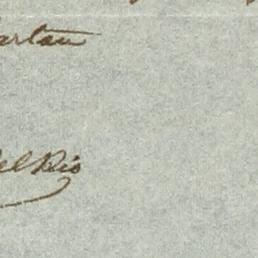 artan
el Rio